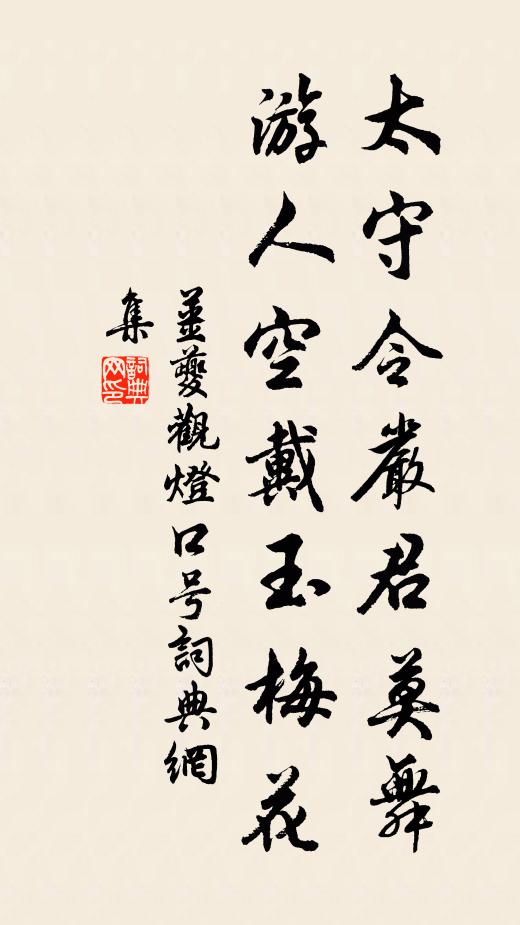 太守令嚴君莫舞
游人空戴玉梅花
姜夔觀燈口号詞典網
集
詞典網印